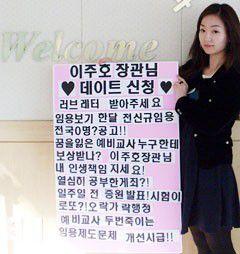 Welcome
이주호 장관님
♥ 데이트 신청 ♥
러브레터 받아주세요
임용보기 한달 전신규임용
전국0명?공고!!
꿈을잃은 예비교사누구한테
보상받나? 이주호장관님
내 인생책임 지세요!
열심히 공부한게죄?!
일주일 전 증원 발표!시험이
로또?!오락가락행정
예비교사 두번죽이는
임용제도문제 개선시급!!